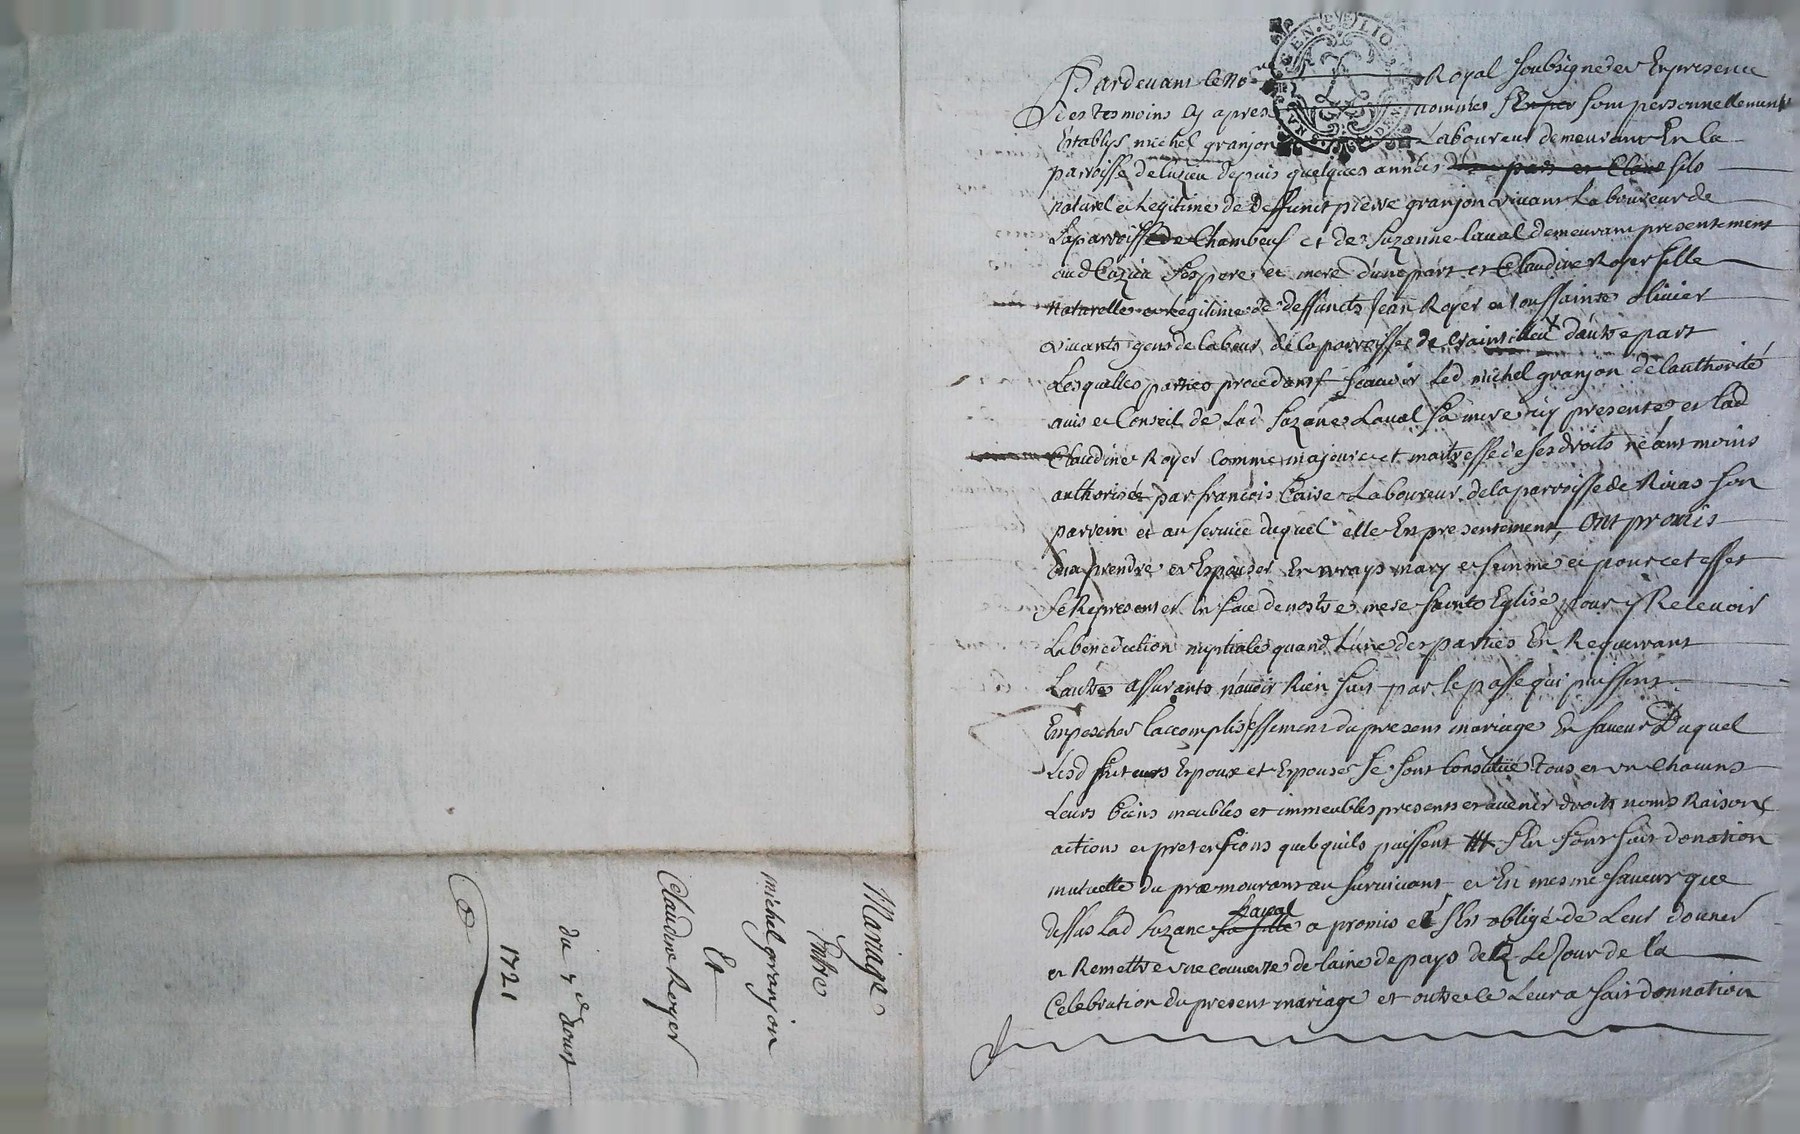 Mariage
Entre
michel granjon
Et
Claudine Royer
du 7e Aoust
1721
GEN. DE LION
Pardevant le No^re Royal soubsigné et En presence
des tesmoins Cy apres nommés sont personnellement
Establys michel granjon Laboureur demeurant En la
parroisse de luzieu depuis quelques années fils
naturel et Legitime de Deffunct pierre granjon vivant Laboureur de
La parroisse de Chambeuf et de Suzanne laval demeurant presentement
aud Cuzieu ses pere et mere d'une part et Claudine Royer fille
Naturelle et Legitime de deffuncts Jean Royer et toussainte olivier
vivants gens de labeur de la parroisse de Craintilleu d'autre part
Lesquelles parties procedant scavoir Led michel granjon de lauthorité
avis et Conseil de Lad Suzane Laval sa mere icy presente et lad
Claudine Royer Comme majeure et maitresse de ses droits neantmoins
authorisée par francois Caire Laboureur de la parroisse de Rivas son
parrein et au service duquel elle Est presentement, Ont promis
se prendre et Espouser En vrays mary et femme et pour cet effet
se Representer En face de nostre mere sainte Eglise pour y Recevoir
La benediction nuptiale quand L'une des parties En Requerrant
Lautre assurants n'avoir Rien fait par le passé qui puissent
Empescher laccomplissessement du present mariage En faveur Duquel
Lesd futeurs Espoux et Espouse se sont Constitué tous et un Chacuns
Leurs biens meubles et immeubles presents et avenir droits noms Raisons
actions et pretensions quels quils puissent s'En sont fait donation
mutuelle du præmourant au survivant et En mesme faveur que
dessus Lad Suzane sa fille Laval a promis et s'Est obligé de Leur donner
et Remettre une couverte de laine de pays de Le Jour de la
Celebration du present mariage et outre ce Leur a fait donnation